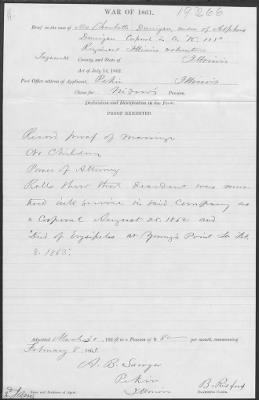 WAR OF 1861.
19266
Brief in the case of Mrs Charlotte Dunigan, widow of Alpheus
Dunigan Corporal in Co. "K" 115"
Regiment Illinois Volunteers
Tazewell County, and State of Illinois
Act of July 14, 1862.
Post Office address of Applicant, Pekin Illinois
Claim for Widow's Pension.
Declaration and Identification in due Form.
PROOF EXHIBITED.
Record proof of Marriage
No Children
Power of Attorney
Rolls show that Decedent was mus-
tered into service in said Company as
a Corporal August 25. 1862 and
died of Erysipelas at Young's Point La Feb
8. 1863.
Admitted March 21 186 to a Pension of $8 per month, commencing
February 8 1863.
A. B. Sawyer
Pekin
Illinois
Name and Residence of Agent.
Examining Clerk.